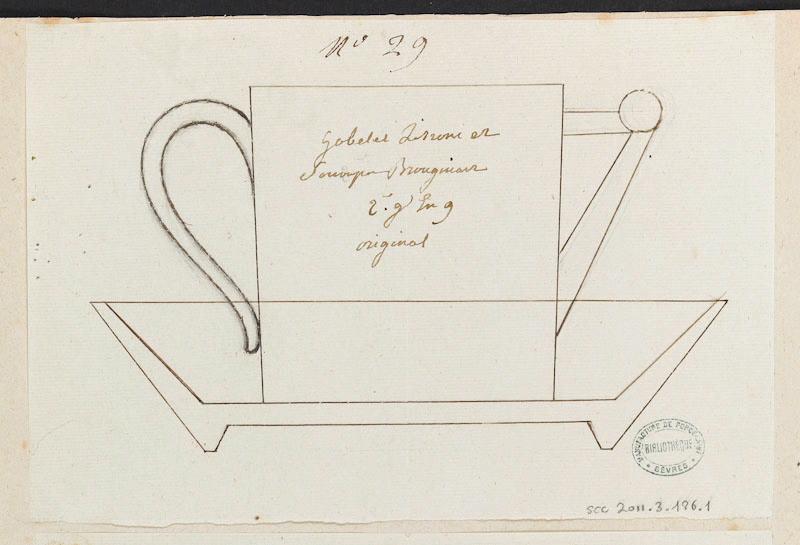 Nº 29
Gobelet Litron et
Soucoupe Brongniart
2.e gr En 9
original
MANUFACTURE DE PORCELAINE
BIBLIOTHEQUE
SEVRES
SCC 2011.3.186.1